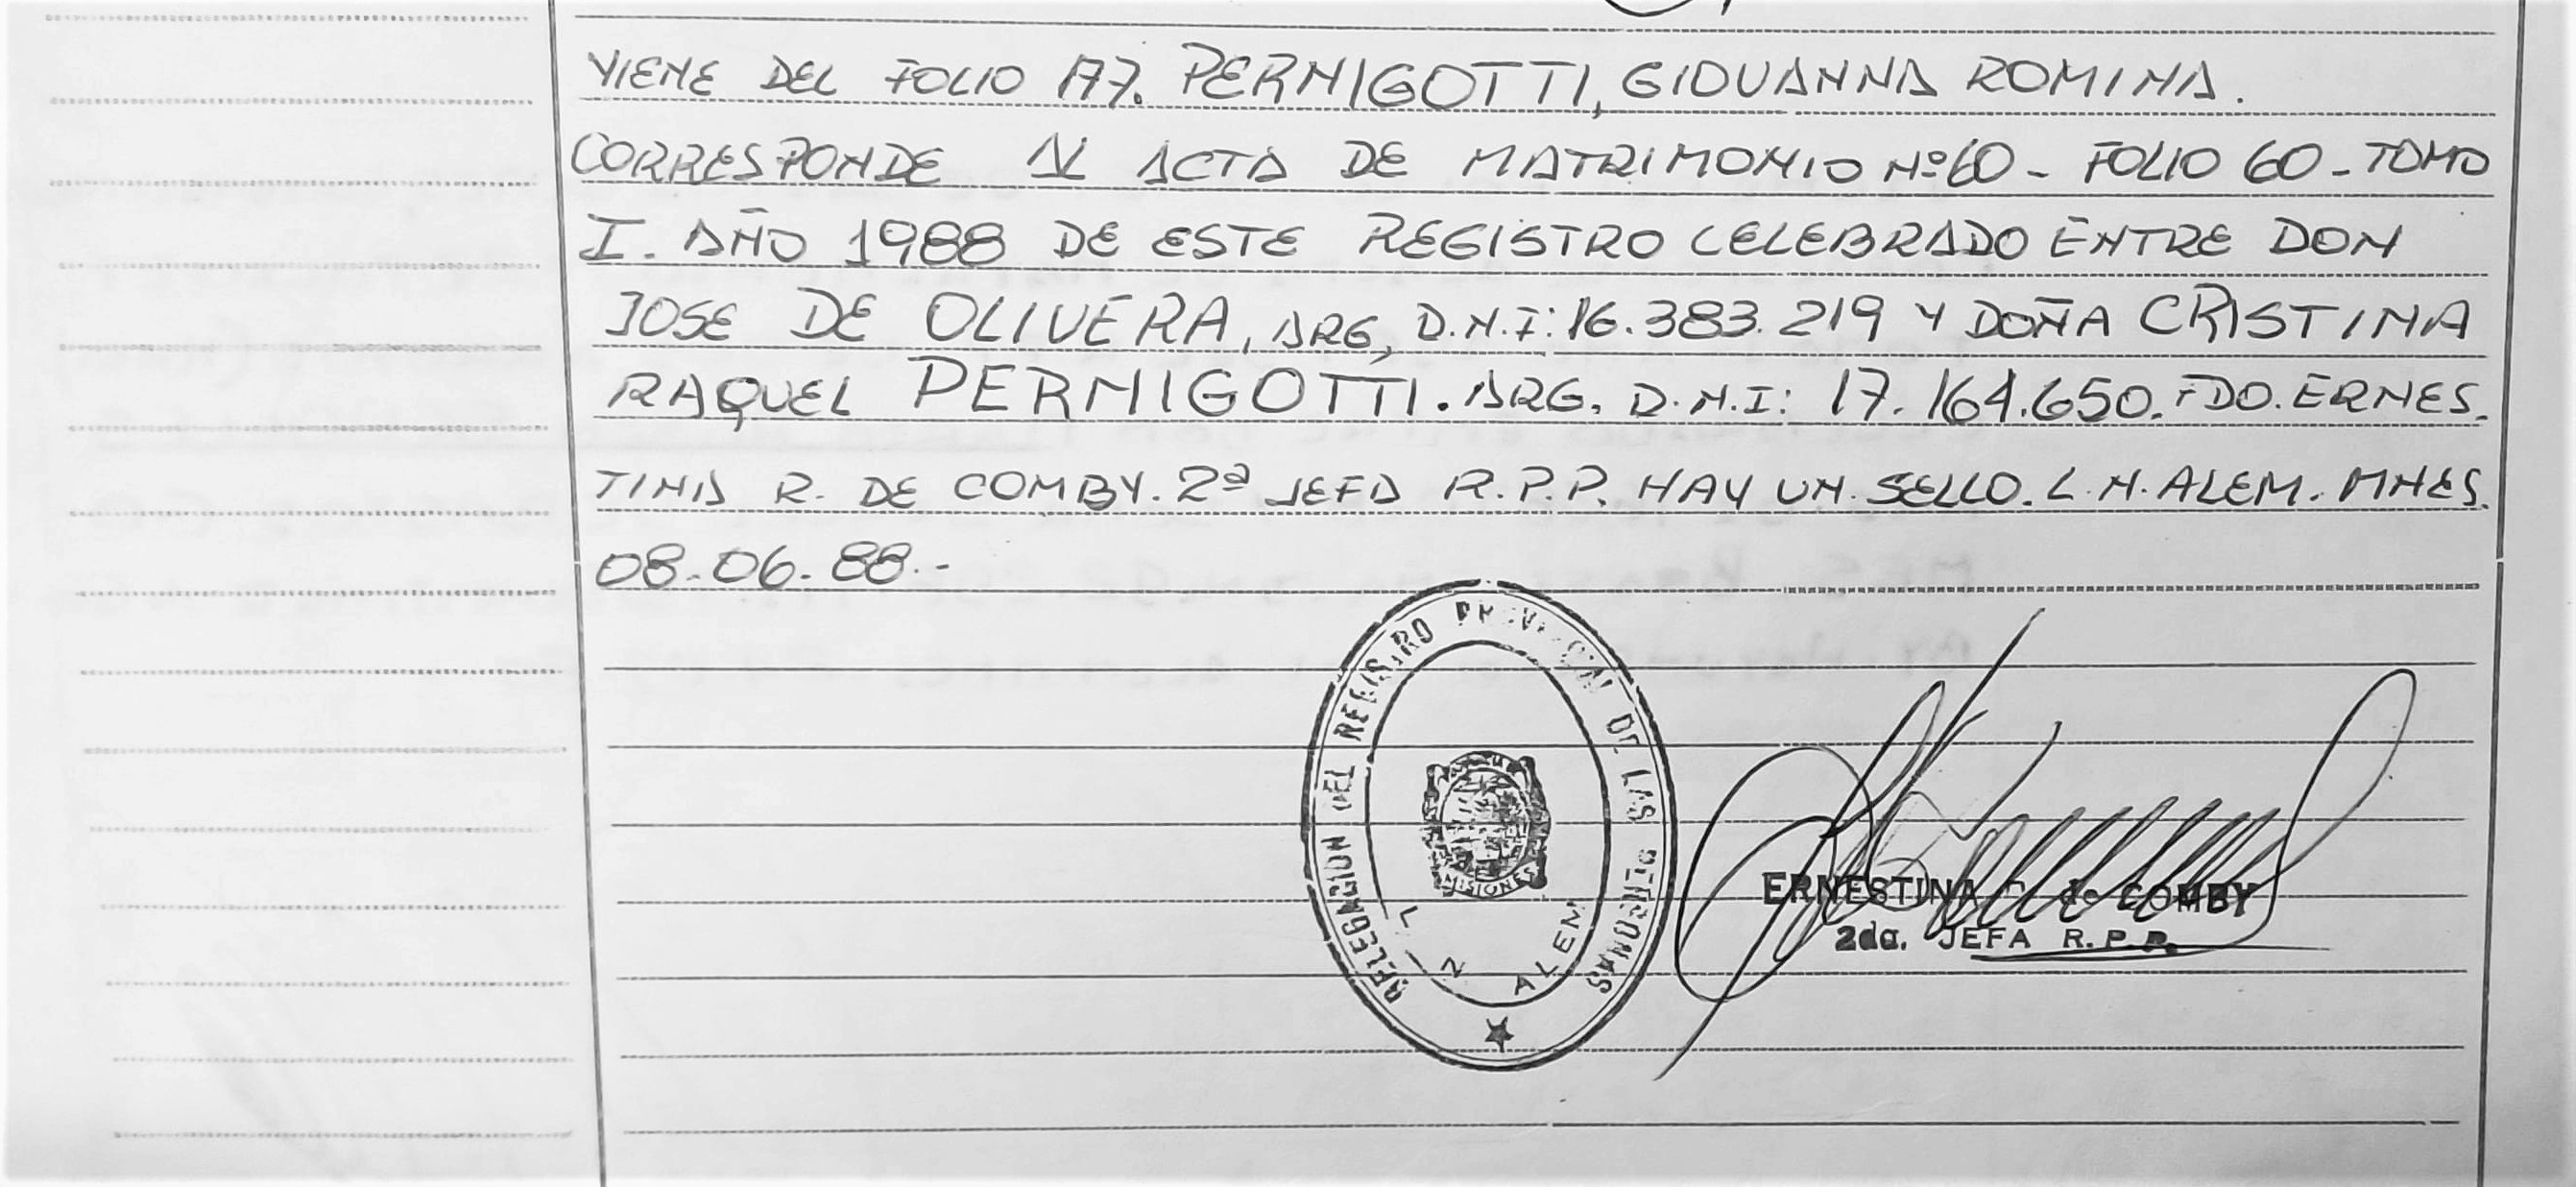 VIENE DEL FOLIO 177. PERNIGOTTI, GIOVANNA ROMINA.
CORRESPONDE AL ACTA DE MATRIMONIO Nº60 - FOLIO 60 - TOMO
I. AÑO 1988 DE ESTE REGISTRO CELEBRADO ENTRE DON
JOSE DE OLIVERA, ARG, D.N.I: 16.383.219 Y DOÑA CRISTINA
RAQUEL PERNIGOTTI. ARG. D.N.I: 17.164.650. FDO. ERNES.
TINA R. DE COMBY. 2ª JEFA R.P.P. HAY UN SELLO. L.N. ALEM. MNES.
08-06-88.-
DELEGACION DEL REGISTRO PROVINCIAL DE LAS PERSONAS
MISIONES
L N ALEM
ERNESTINA de COMBY
2da. JEFA R. P. P.